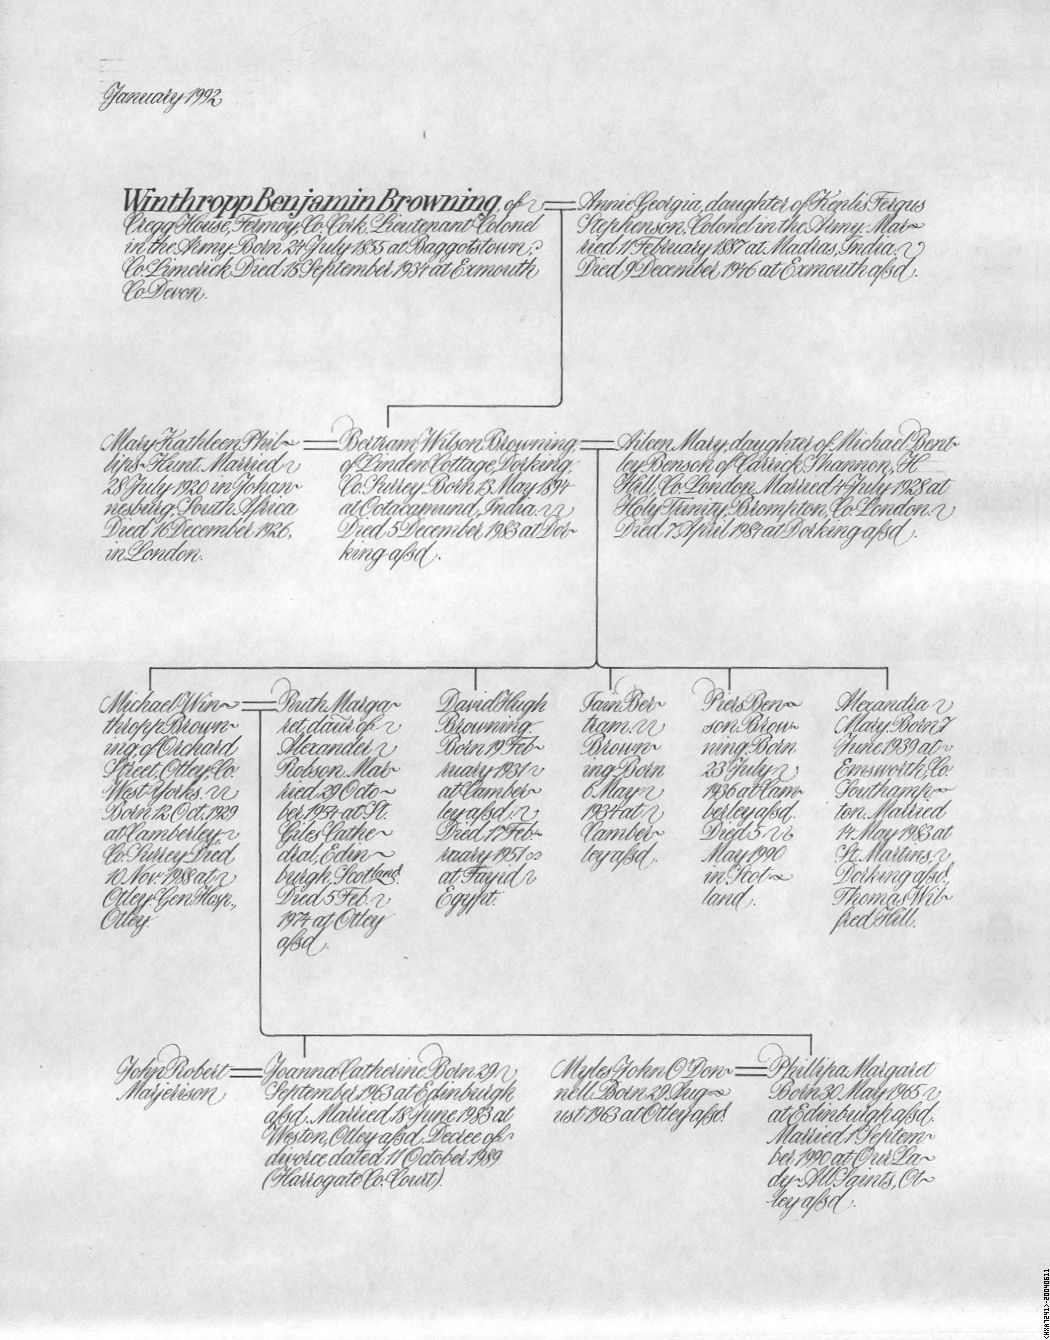 January 1992
Winthropp Benjamin Browning, of
Cregg House, Fermoy Co. Cork, Lieutenant-Colonel
in the Army. Born 24 July 1855 at Baggotstown,
Co. Limerick. Died 15 September 1934 at Exmouth
Co. Devon.
Annie Georgia, daughter of Fergus
Stephenson, Colonel in the Army. Mar-
ried 1 February 1887 at Madras, India.
Died 9 December 1946 at Exmouth afsd.
Mary Kathleen Phil-
lips-Hunt. Married
28 July 1920 in Johan-
nesburg, South Africa
Died 16 December 1926,
in London.
Bertram Wilson Browning,
of Linden Cottage, Dorking,
Co. Surrey. Born 13 May 1894
at Ootacamund, India.
Died 5 December 1983 at Dor-
king afsd.
Aileen Mary, daughter of Michael Bent-
ley Benson of Carrick, Shannon, H
Hill, Co. London. Married 4 July 1928 at
Holy Trinity, Brompton, Co. London.
Died 7 April 1981 at Dorking afsd.
Michael Win-
thropp Brown-
ing, of Orchard
Street, Otley, Co.
West Yorks.
Born 12 Oct. 1929
at Camberley
Co. Surrey. Died
10 Nov. 1988 at
Otley Gen. Hosp.,
Otley.
Ruth Marga-
ret, daur of
Alexander
Robson. Mar-
ried 29 Octo-
ber 1954 at St.
Giles Cathe-
dral, Edin-
burgh, Scotland.
Died 5 Feb.
1974 at Otley
afsd.
David Hugh
Browning.
Born 19 Feb-
ruary 1931
at Camber-
ley afsd.
Died 17 Feb-
ruary 1951
at Fayid
Egypt.
Iain Ber-
tram
Brown-
ing. Born
6 May
1934 at
Camber-
ley afsd.
Piers Ben-
son Brow-
ning. Born
23 July
1936 at Cam-
berley afsd.
Died 5
May 1990
in Scot-
land.
Alexandra
Mary. Born 7
June 1939 at
Emsworth, Co.
Southamp-
ton. Married
14 May 1983 at
St. Martins,
Dorking afsd.
Thomas Wil-
fred Hill.
John Robert
Marjerison
Joanna Catherine. Born 29
September 1963 at Edinburgh
afsd. Married 18 June 1983 at
Weston, Otley afsd. Decree of
divorce dated 11 October 1989
(Harrogate Co. Court).
Myles John O'Don-
nell. Born 29 Aug-
ust 1963 at Otley afsd.
Phillipa Margaret
Born 30 May 1965
at Edinburgh afsd.
Married 1 Septem-
ber 1990 at Our La-
dy & All Saints, Ot-
ley afsd.